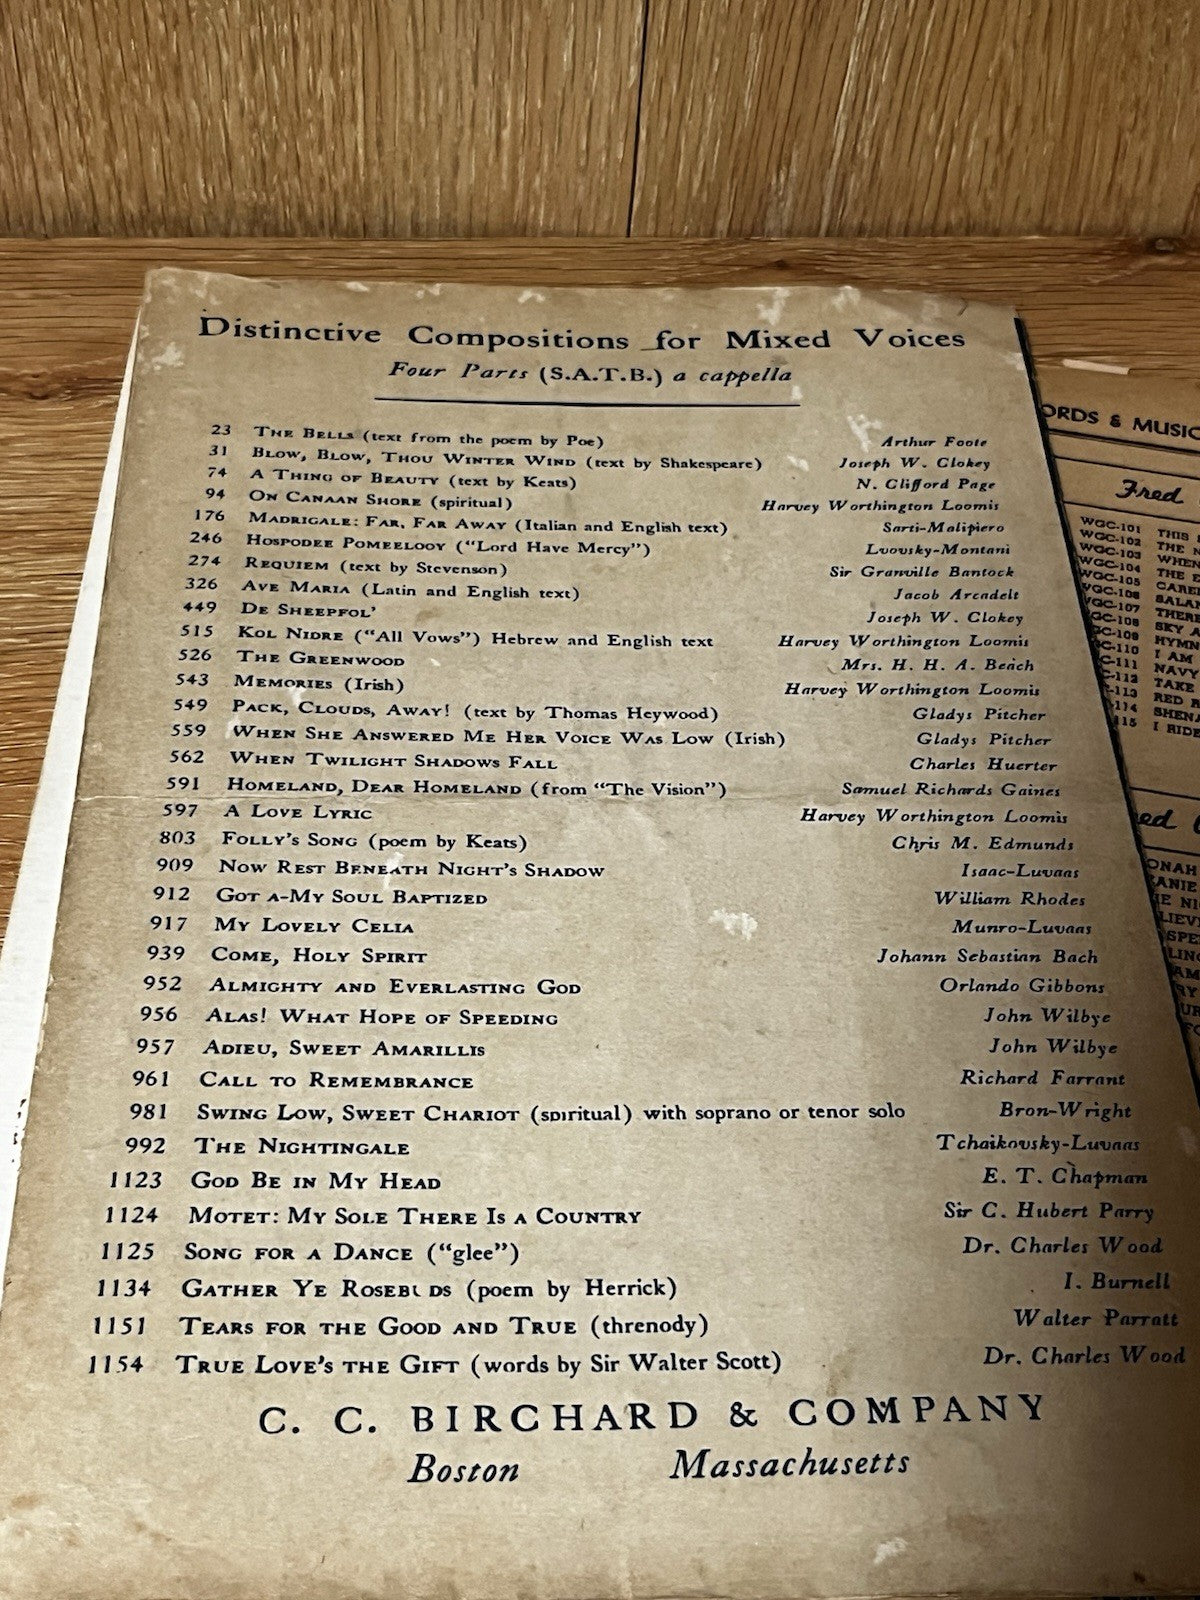 Distinctive Compositions for Mixed Voices
Four Parts (S.A.T.B.) a cappella
23 THE BELLS (text from the poem by Poe) Arthur Foote
31 BLOW, BLOW, THOU WINTER WIND (text by Shakespeare) Joseph W. Clokey
74 A THING OF BEAUTY (text by Keats) N. Clifford Page
94 ON CANAAN SHORE (spiritual) Harvey Worthington Loomis
176 MADRIGALE: FAR, FAR AWAY (Italian and English text) Sarti-Malipiero
246 HOSPODEE POMEELOOY ("Lord Have Mercy") Lvovsky-Montani
274 REQUIEM (text by Stevenson) Sir Granville Bantock
326 AVE MARIA (Latin and English text) Jacob Arcadelt
449 DE SHEEPFOL' Joseph W. Clokey
515 KOL NIDRE ("All Vows") Hebrew and English text Harvey Worthington Loomis
526 THE GREENWOOD Mrs. H. H. A. Beach
543 MEMORIES (Irish) Harvey Worthington Loomis
549 PACK, CLOUDS, AWAY! (text by Thomas Heywood) Gladys Pitcher
559 WHEN SHE ANSWERED ME HER VOICE WAS LOW (Irish) Gladys Pitcher
562 WHEN TWILIGHT SHADOWS FALL Charles Huerter
591 HOMELAND, DEAR HOMELAND (from "The Vision") Samuel Richards Gaines
597 A LOVE LYRIC Harvey Worthington Loomis
803 FOLLY'S SONG (poem by Keats) Chris M. Edmunds
909 NOW REST BENEATH NIGHT'S SHADOW Isaac-Luvaas
912 GOT A-MY SOUL BAPTIZED William Rhodes
917 MY LOVELY CELIA Munro-Luvaas
939 COME, HOLY SPIRIT Johann Sebastian Bach
952 ALMIGHTY AND EVERLASTING GOD Orlando Gibbons
956 ALAS! WHAT HOPE OF SPEEDING John Wilbye
957 ADIEU, SWEET AMARILLIS John Wilbye
961 CALL TO REMEMBRANCE Richard Farrant
981 SWING LOW, SWEET CHARIOT (spiritual) with soprano or tenor solo Bron-Wright
992 THE NIGHTINGALE Tchaikovsky-Luvaas
1123 GOD BE IN MY HEAD E. T. Chapman
1124 MOTET: MY SOLE THERE IS A COUNTRY Sir C. Hubert Parry
1125 SONG FOR A DANCE ("glee") Dr. Charles Wood
1134 GATHER YE ROSEBUDS (poem by Herrick) I. Burnell
1151 TEARS FOR THE GOOD AND TRUE (threnody) Walter Parratt
1154 TRUE LOVE'S THE GIFT (words by Sir Walter Scott) Dr. Charles Wood
C. C. BIRCHARD & COMPANY
Boston Massachusetts
ORDS & MUSIC
Fred
WGC-101 THIS
WGC-102 THE N
WGC-103 WHEN
WGC-104 THE E
WGC-105 CARE
WGC-106 SALA
WGC-107 THERE
GC-108 SKY
GC-109 HYMN
GC-110 I AM
C-111 NAVY
C-112 TAKE
-113 RED
-114 SHEN
115 I RIDE
ed
ONAH
ANIE
E NI
LIEV
SPE
LING
AM
RY
UR
FO